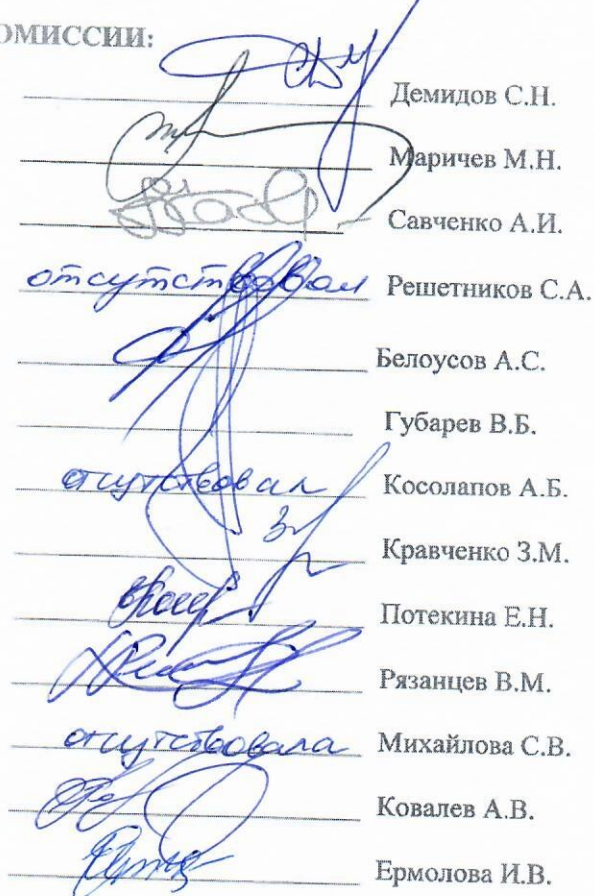 ОМИССИИ:
Демидов С.Н.
Маричев М.Н.
Савченко А.И.
отсутствовал Решетников С.А.
Белоусов А.С.
Губарев В.Б.
отсутствовал Косолапов А.Б.
Кравченко З.М.
Потекина Е.Н.
Рязанцев В.М.
отсутствовала Михайлова С.В.
Ковалев А.В.
Ермолова И.В.